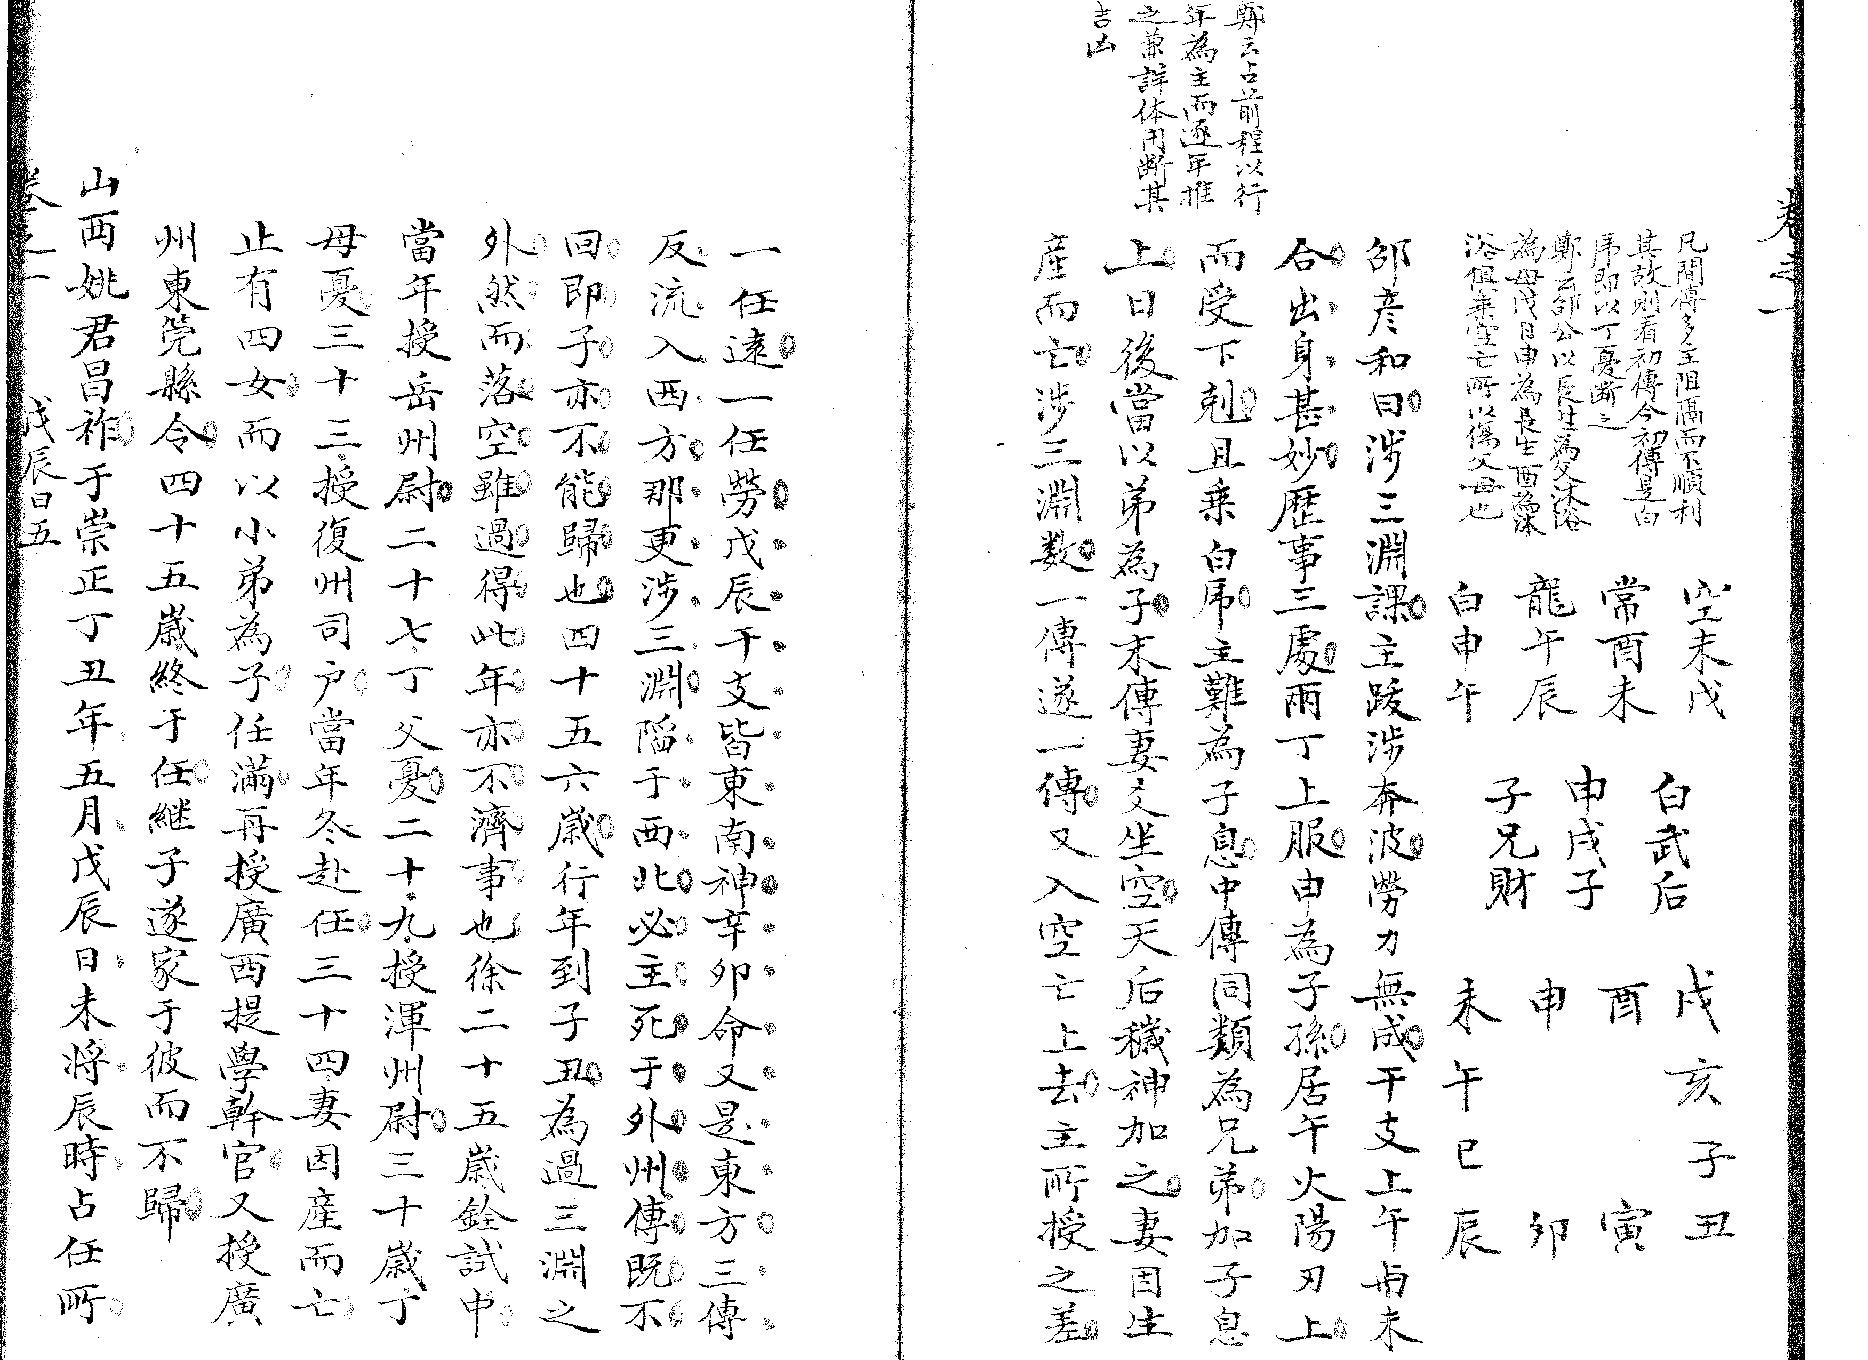 卷之一
凡間傳多主阻隔而不順利
其故則看初傳今初傳是白
乕即以丁憂断之
鄭云邵公以長生為父沐浴
為母戊日申為長生酉為沐
浴俱乘空亡所以傷父母也
空未戊
常酉未
龍午辰
白申午
白武后
申戌子
子兄財
戌亥子丑
酉 寅
申 卯
未午巳辰
鄭云占前程以行
年為主而逐年推
之兼詳体用断其
吉凶
邵彦和曰涉三淵課主跋涉奔波勞力無成干支上午與未
合出身甚妙歴事三處兩丁上服申為子孫居午火陽刃上
而受下剋且乗白乕主難為子息中傳同類為兄弟加子息
上日後當以弟為子末傳妻爻坐空天后穢神加之妻因生
產而亡涉三淵数一傳遂一傳又入空亡上去主所授之差
一任遠一任勞戊辰干支皆東南神辛卯命又是東方三傳
反流入西方那更涉三淵陷于西北必主死于外州傳既不
回即子亦不能歸也四十五六歲行年到子丑為過三淵之
外然而落空雖過得此年亦不濟事也徐二十五歲銓試中
當年授岳州尉二十七丁父憂二十九授渾州尉三十歲丁
母憂三十三授復州司户當年冬赴任三十四妻因產而亡
止有四女而以小弟為子任滿再授廣西提學幹官又授廣
州東筦縣令四十五歲終于任継子遂家于彼而不歸
山西姚君昌祚于崇正丁丑年五月戊辰日未將辰時占任所
卷之一 戊辰日五